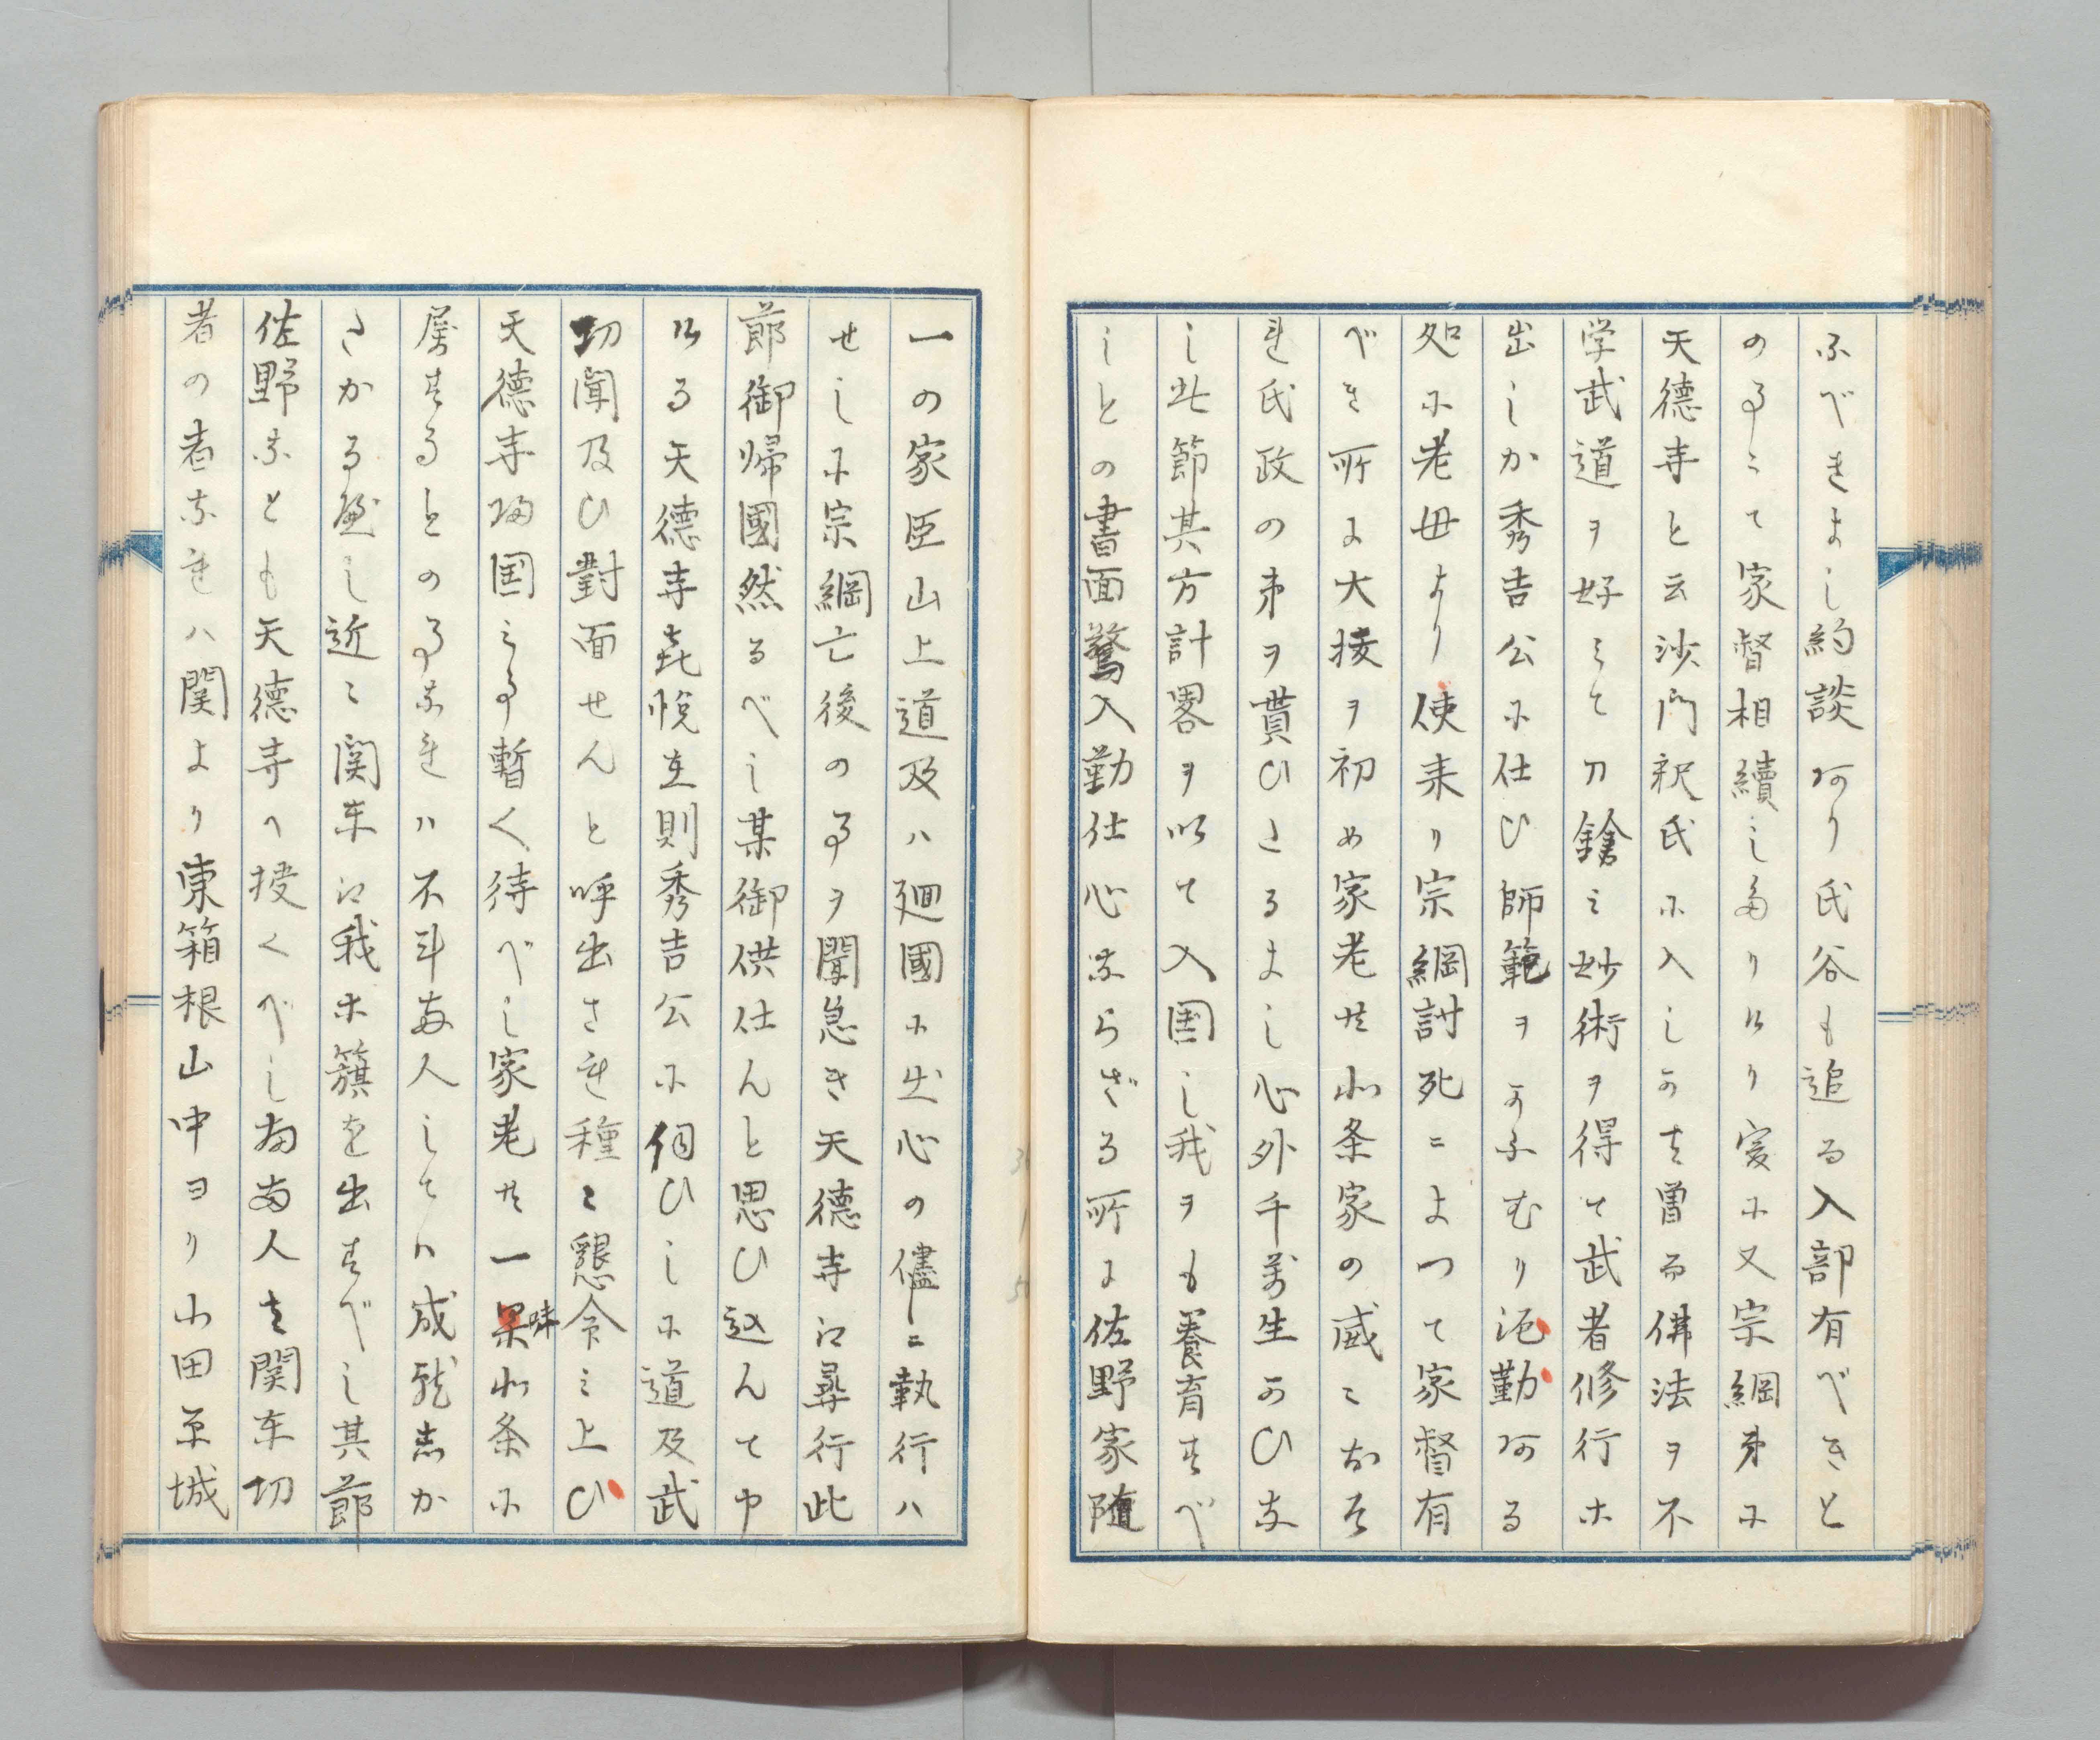 ふべきよし約談有り氏谷も追る入部有べきと
のるニて家督相續しありけり爰に又宗綱弟に
天徳寺と云沙門釈氏に入しかと曽而佛法ヲ不
学武道ヲ好ミて刀鎗ミ妙術ヲ得て武者修行ホ
出しか秀吉公に仕ひ師範ヲかふむり浥勤ある
処に老母より使来り宗綱討死ニよつて家督有
べき所に大援ヲ初め家老共北条家の威ニおそ
れ氏政の弟ヲ貰ひたるよし心外千萬生かひな
し此節其方計畧ヲ以て入国し我ヲも養育すべ
しとの書面驚入勤仕心ならざる所に佐野家随
一の家臣山上道及ハ廻國に出心の儘ニ執行ハ
せしに宗綱亡後の事ヲ聞急き天徳寺江尋行此
節御帰國然るべし某御供仕んと思ひ込んて申
ける天徳寺喜悦在則秀吉公に伺ひしに道及武
功聞及ひ對面せんと呼出され種々懇令ミ上ひ
天徳寺帰国ミ事暫く待べし家老共一味北条に
属するとの事なれハ不斗両人してハ成就志か
たかる遍し近々関東江我ホ籏を出すべし其節
佐野なとも天徳寺へ授くべし両人を関東切
者の者なれハ関より東箱根山中ヨリ小田原城